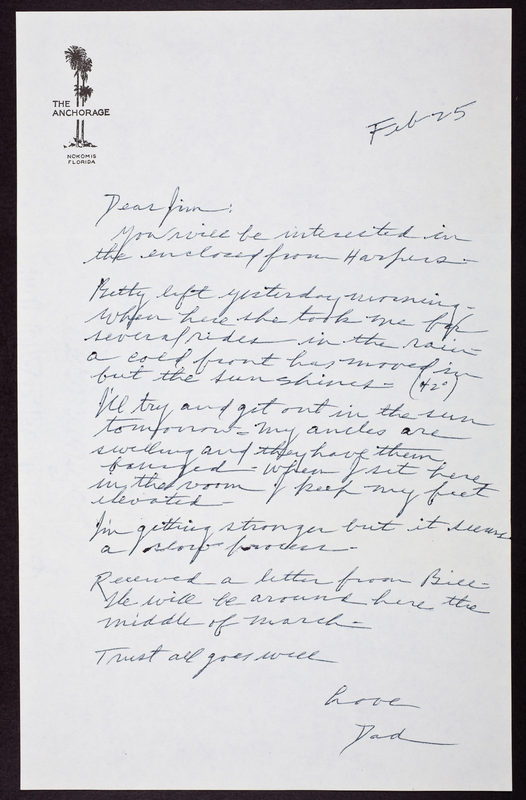 THE
ANCHORAGE
NOKOMIS
FLORIDA
Feb 25
Dear Jim:
You will be interested in
the enclosed from Harpers -
Betty left yesterday morning -
When here she took me for
several rides in the rain -
a cold front has moved in
but the sun shines - (42°)
I'll try and get out in the sun
tomorrow - my ancles are
swelling and they have them
banaged - When I sit here
in the room I keep my feet
elevated -
I'm getting stronger but it seems
a slow process -
Received a letter from Bill -
He will be around here the
middle of March -
Trust all goes well
Love
Dad